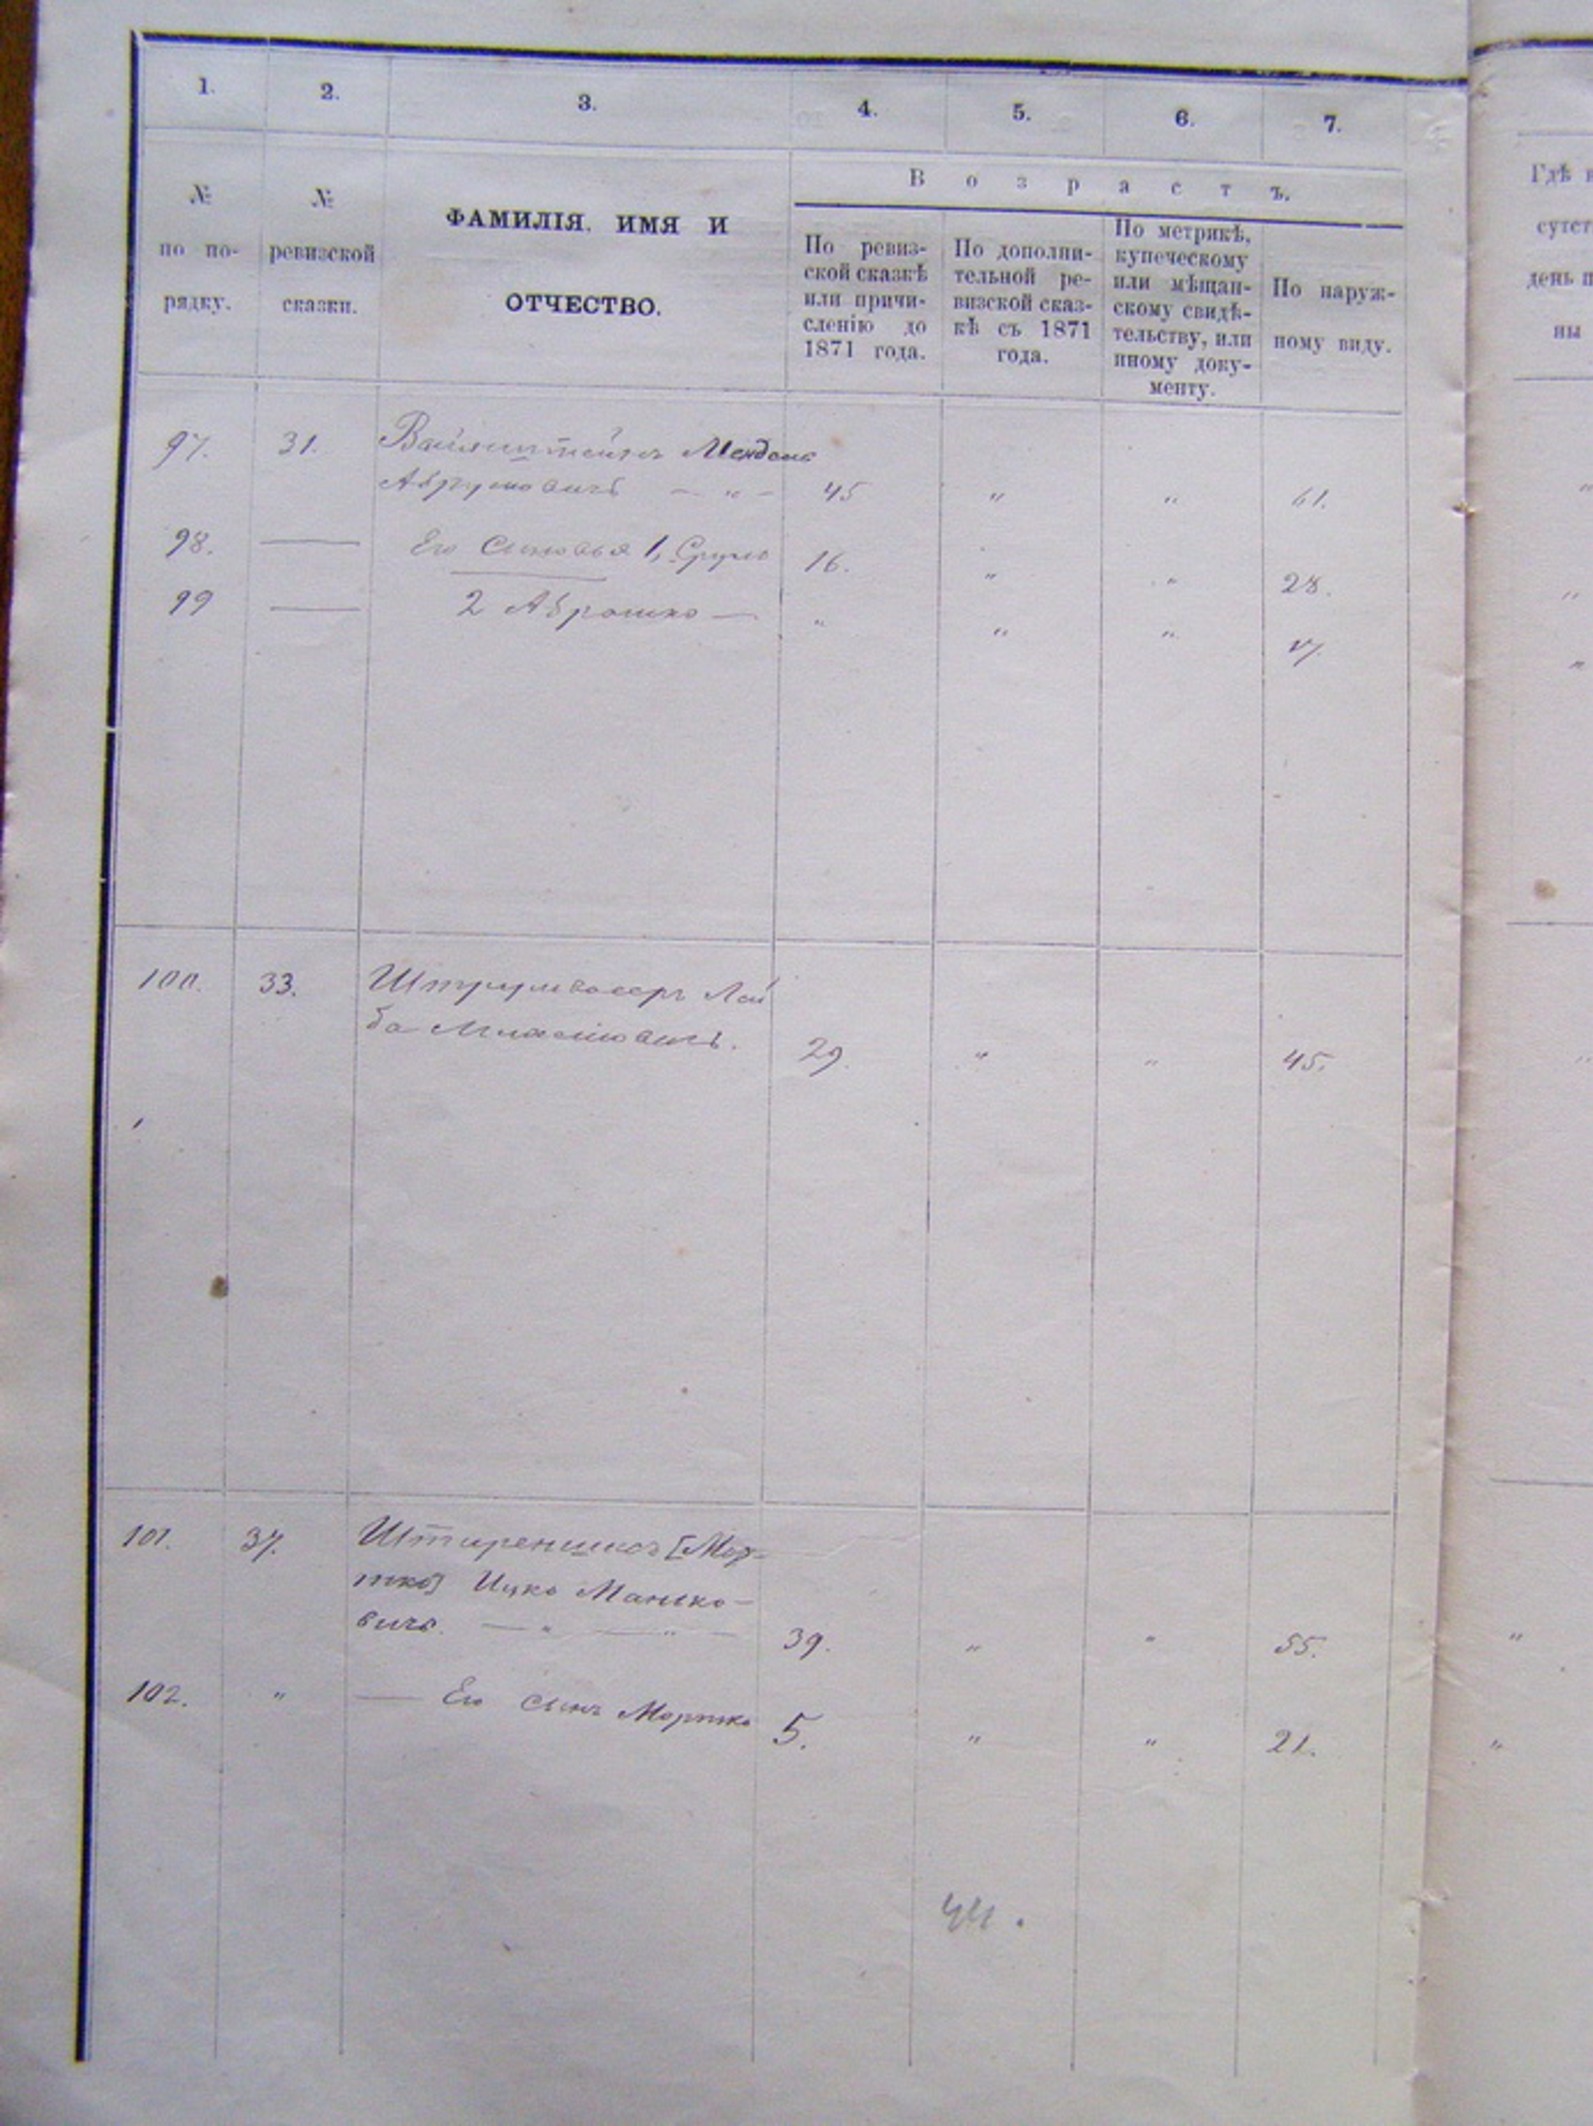 1. 2. 3. 4. 5. 6. 7.
№ по по-рядку.
№ ревизской сказки.
ФАМИЛІЯ, ИМЯ И
ОТЧЕСТВО.
Возрастъ.
По ревиз-
ской сказкѣ
или причи-
сленію до
1871 года.
По дополни-
тельной ре-
визской сказ-
кѣ съ 1871
года.
По метрикѣ,
купеческому
или мѣщан-
скому свидѣ-
тельству, или
иному доку-
менту.
По наруж-
ному виду.
97. 31. Вайнштейнъ
Абрумовичъ — „ — 45 „ „ 61.
98. — Его сыновья 1, Сруль 16. „ „ 28.
99 — 2 Аброшко — „ „ „ 17.
100. 33. Штрумвасеръ Лей
ба 29. „ „ 45.
101. 37. [Мор-
тко] Ицко Манико-
вичъ. — „ — „ — 39. „ „ 55.
102. „ — Его сынъ Мортко 5. „ „ 21.
Гдѣ
сутст
день п
ны